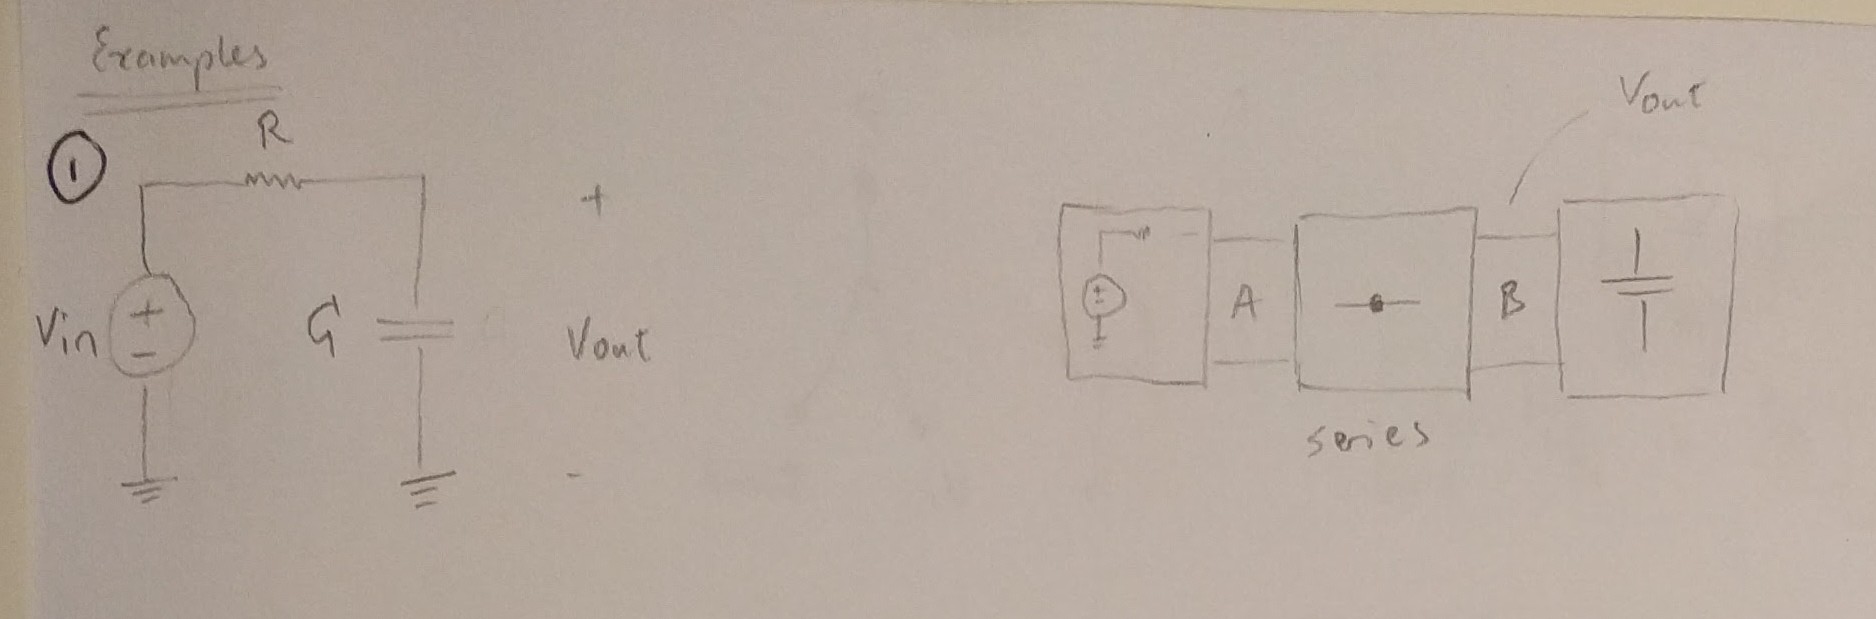 Examples
R
1
+
Vin
+
-
C1
Vout
-
Vout
A
B
series